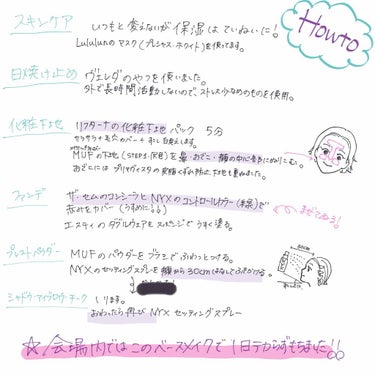 Howto
スキンケア
いつもと変えないが保湿はていねいに!
Lululunのマスク(プレシャス・ホワイト)を使ってます。
日焼け止め
ヴェレダのやつを使いました。
外で長時間活動しないので、ストレス少なめのものを使用。
化粧下地
リフターナの化粧下地 パック 5分
MUFの下地(STEP1・灰色)を鼻・おでこ・顔の中心辺りにぬりこむ。
おでこにはプリマヴィスタの皮脂くずれ防止下地も重ねました。
ファンデ
ザ・セムのコンシーラとNYXのコントロールカラー(緑)で
赤みをカバー(うすめに!!)
まぜてぬる!
エスティのダブルウェアをスポンジでうすく塗る。
プレストパウダー
MUFのパウダーをブラシでふわっとつける。
NYXのセッティングスプレを顔から30cmはなしてふきかける。
シャドウ・アイブロウ・チーク
します。
おわったら再びNYXセッティングスプレー
☆会場内ではこのベースメイクで1日テカらずもちました!!